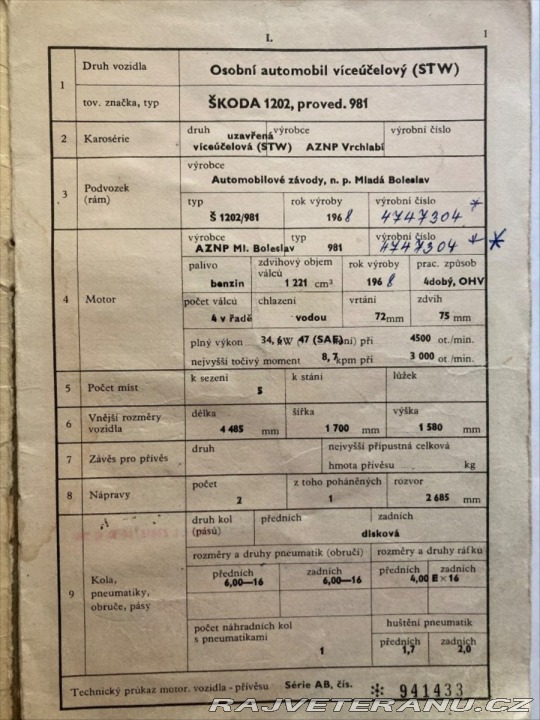 I.
1
1 Druh vozidla Osobní automobil víceúčelový (STW)
tov. značka, typ ŠKODA 1202, proved. 981
2 Karosérie druh uzavřená víceúčelová (STW) výrobce AZNP Vrchlabí výrobní číslo
3 Podvozek (rám) výrobce
Automobilové závody, n. p. Mladá Boleslav
typ rok výroby výrobní číslo
Š 1202/981 1968 4747304 *
4 Motor výrobce typ výrobní číslo
AZNP Ml. Boleslav 981 4747304 * *
palivo zdvihový objem válců rok výroby prac. způsob
benzin 1 221 cm³ 1968 4dobý, OHV
počet válců chlazení vrtání zdvih
4 v řadě vodou 72 mm 75 mm
plný výkon 34,6W (47 (SAE) ní) při 4500 ot./min.
nejvyšší točivý moment 8,7 kpm při 3 000 ot./min.
5 Počet míst k sezení k stání lůžek
5
6 Vnější rozměry vozidla délka šířka výška
4 485 mm 1 700 mm 1 580 mm
7 Závěs pro přívěs druh nejvyšší přípustná celková
hmota přívěsu kg
8 Nápravy počet z toho poháněných rozvor
2 1 2 685 mm
9 Kola, pneumatiky, obruče, pásy druh kol (pásů) předních zadních
disková
rozměry a druhy pneumatik (obručí) rozměry a druhy ráfků
předních zadních předních zadních
6,00—16 6,00—16 4,00 E × 16
počet náhradních kol s pneumatikami huštění pneumatik
předních zadních
1 1,7 2,0
Technický průkaz motor. vozidla - přívěsu Série AB, čís. * 941433
RAJVETERANU.CZ